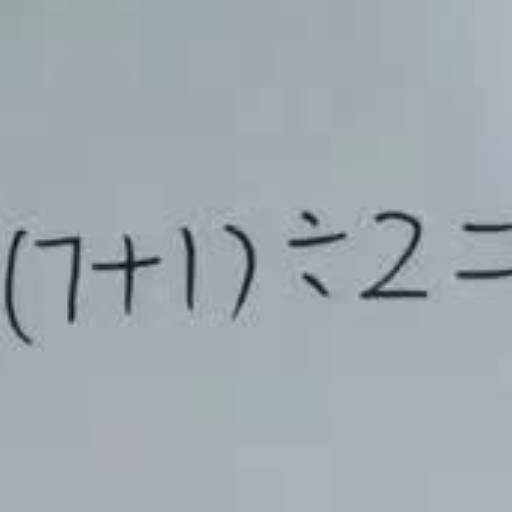 (7+1)÷2=